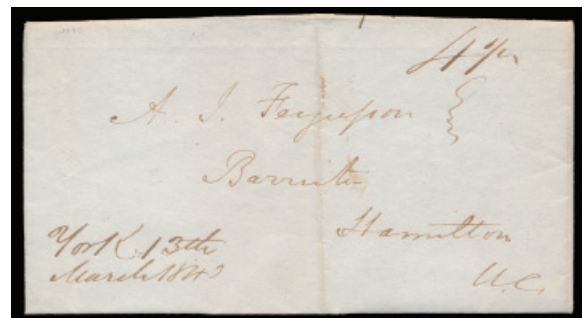 4½
A. J. Ferguson Esq
Barrister
Hamilton
U.C.
York 13th
March 1843